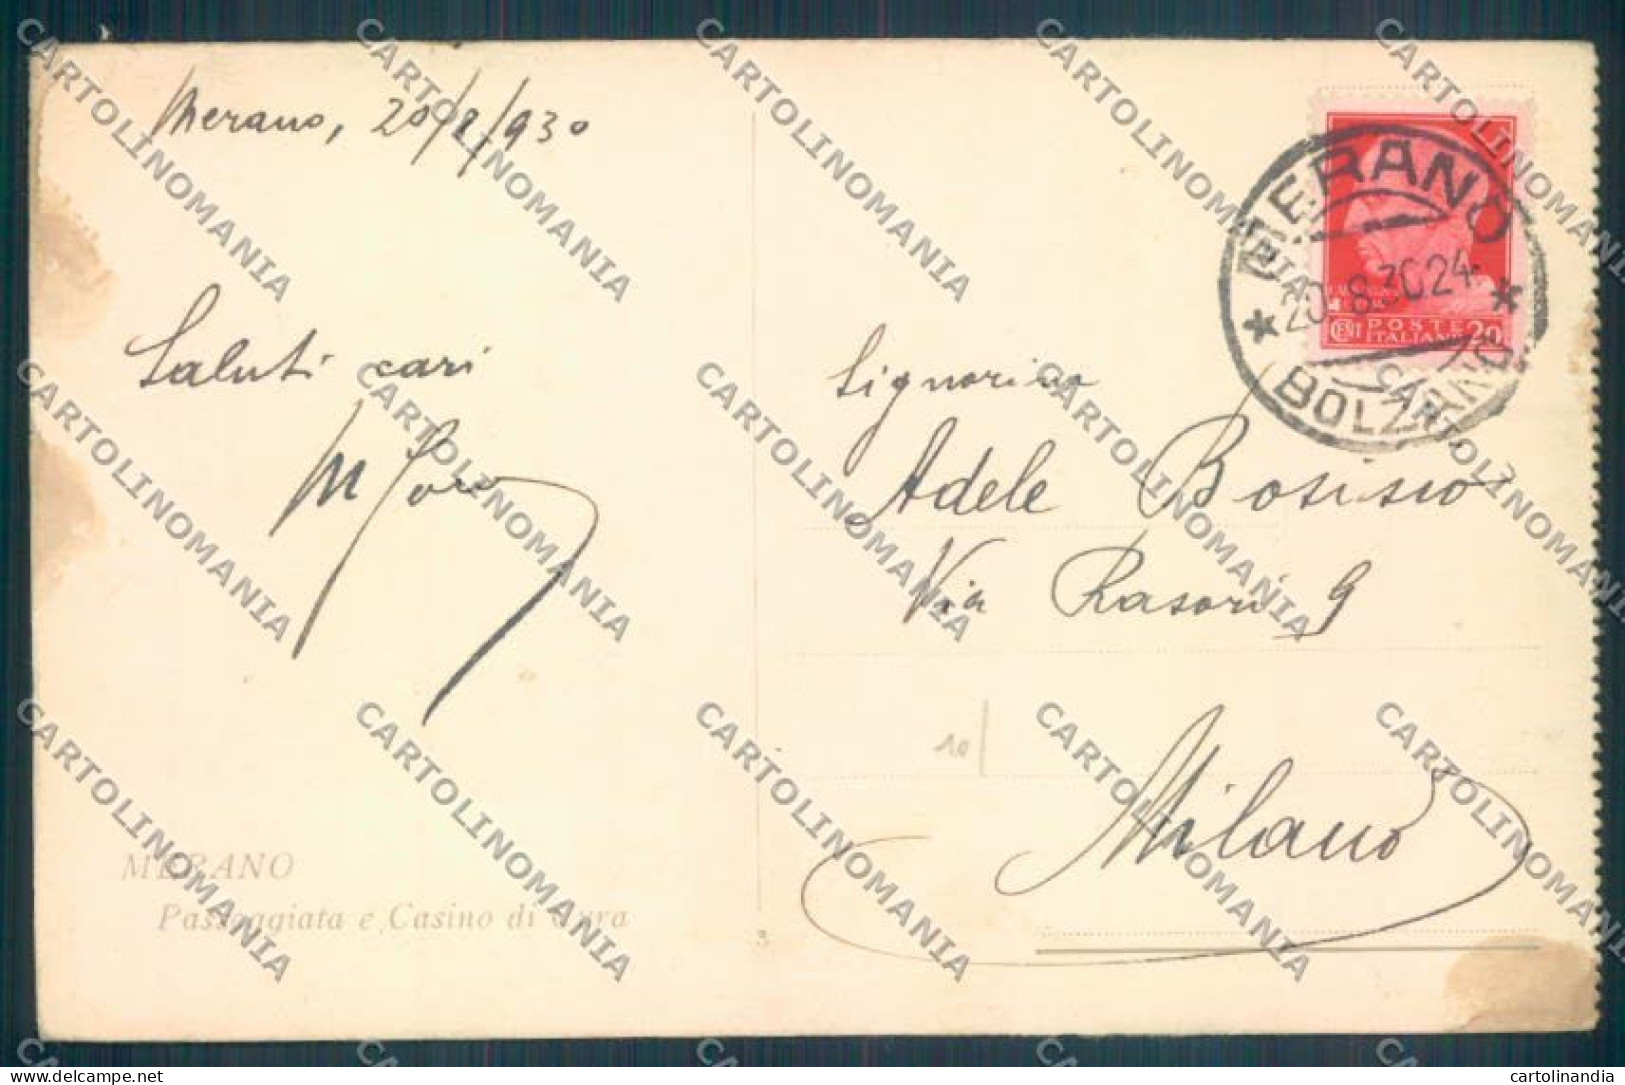 Merano, 20/8/930
Saluti cari
MERANO
Passeggiata e Casino di Cura
3
MERANO
20.8.30.24
BOLZANO
POSTE
ITALIANE
CENT 20
Signorina
Adele Bosisio
Via Rasori 9
10
Milano
CARTOLINOMANIA
delcampe.net
cartolinandia